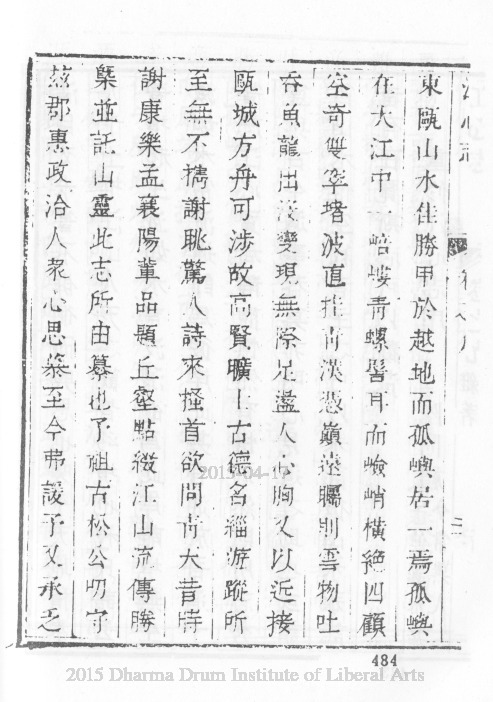 江心志
序
東甌山水佳勝甲於越地而孤嶼居一焉孤嶼
在大江中一嵱嶁青螺髻耳而嶮峭橫絶四顧
空奇雙峯堵波直挂青漢憑巔遠矚則雲物吐
吞魚龍出沒變現無際足盪人心胸又以近接
甌城方舟可涉故高賢曠士古德名緇遊蹤所
至無不攜謝眺驚人詩來搔首欲問青天昔時
謝康樂孟襄陽輩品題丘壑點綴江山流傳勝
槩並託山靈此志所由纂也予祖古松公叨守
茲郡惠政洽人衆心思慕至今弗諼予又承乏
2015-04-17
484
2015 Dharma Drum Institute of Liberal Arts